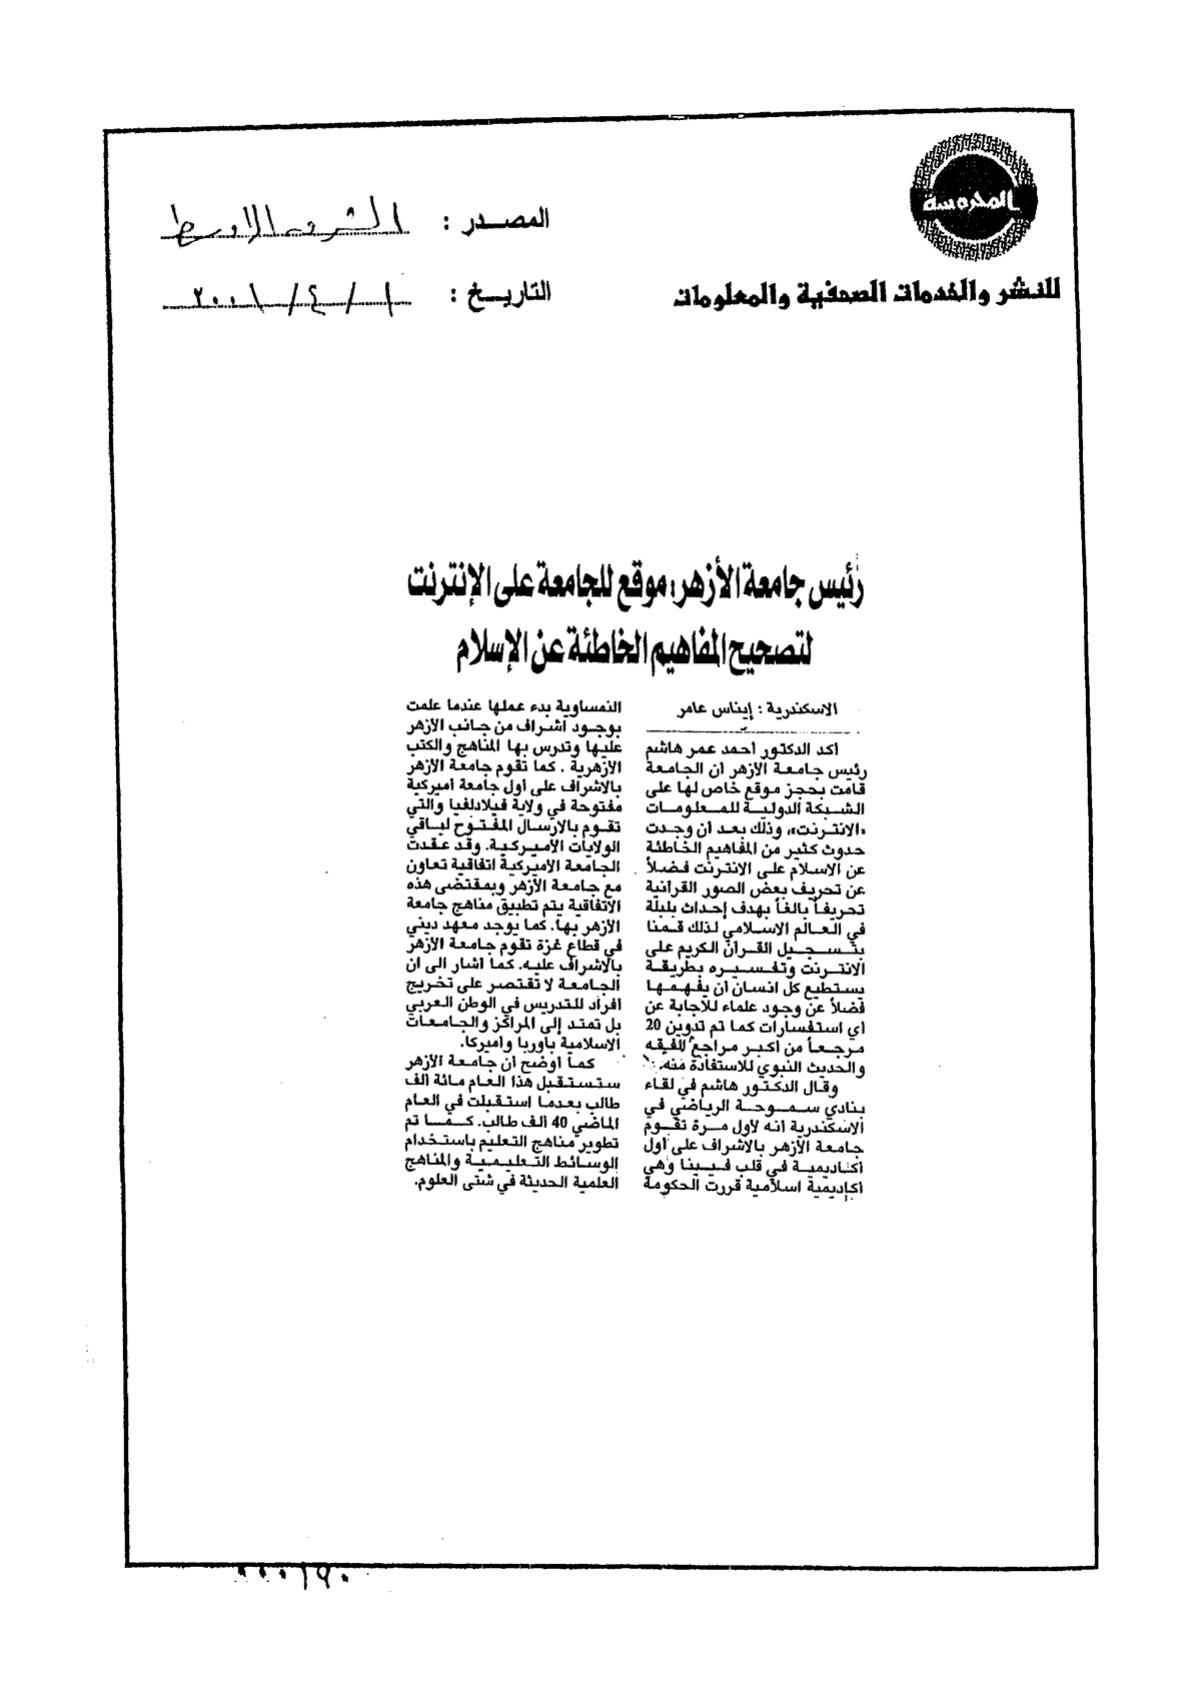 المحروسة
للنشر والخدمات الصحفية والمعلومات
المصدر : الشرق الاوسط
التاريخ : ١ / ٤ / ٢٠٠١
رئيس جامعة الأزهر: موقع للجامعة على الإنترنت
لتصحيح المفاهيم الخاطئة عن الإسلام
الاسكندرية : إيناس عامر
اكد الدكتور احمد عمر هاشم
رئيس جامعة الازهر ان الجامعة
قامت بحجز موقع خاص لها على
الشبكة الدولية للمعلومات
«الانترنت»، وذلك بعد أن وجدت
حدوث كثير من المفاهيم الخاطئة
عن الاسلام على الانترنت فضلاً
عن تحريف بعض الصور القرآنية
تحريفاً بالغاً بهدف إحداث بلبلة
في العالم الاسلامي لذلك قمنا
بتسجيل القرآن الكريم على
الانترنت وتفسيره بطريقة
يستطيع كل انسان ان يفهمها
فضلاً عن وجود علماء للاجابة عن
اي استفسارات كما تم تدوين 20
مرجعاً من اكبر مراجع الفقه
والحديث النبوي للاستفادة منه.
وقال الدكتور هاشم في لقاء
بنادي سموحة الرياضي في
الاسكندرية انه لاول مرة تقوم
جامعة الأزهر بالاشراف على اول
اكاديمية في قلب فيينا وهي
اكاديمية اسلامية قررت الحكومة
النمساوية بدء عملها عندما علمت
بوجود اشراف من جانب الازهر
عليها وتدرس بها المناهج والكتب
الازهرية . كما تقوم جامعة الازهر
بالاشراف على أول جامعة اميركية
مفتوحة في ولاية فيلادلفيا والتي
تقوم بالارسال المفتوح لباقي
الولايات الاميركية. وقد عقدت
الجامعة الاميركية اتفاقية تعاون
مع جامعة الأزهر وبمقتضى هذه
الاتفاقية يتم تطبيق مناهج جامعة
الازهر بها. كما يوجد معهد ديني
في قطاع غزة تقوم جامعة الازهر
بالاشراف عليه. كما اشار الى ان
الجامعة لا تقتصر على تخريج
افراد للتدريس في الوطن العربي
بل تمتد إلى المراكز والجامعات
الاسلامية باوربا واميركا.
كما أوضح ان جامعة الازهر
ستستقبل هذا العام مائة الف
طالب بعدما استقبلت في العام
الماضي 40 الف طالب. كما تم
تطوير مناهج التعليم باستخدام
الوسائط التعليمية والمناهج
العلمية الحديثة في شتى العلوم.